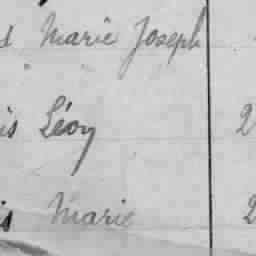 d Marie Joseph
is Léon 2
is Marie 2